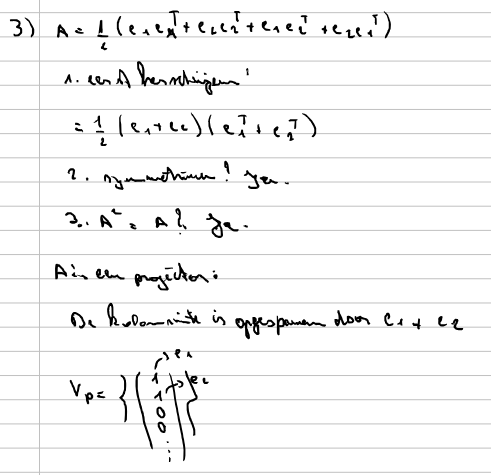 3) A = 1/2 (e₁e₁ᵀ + e₂e₂ᵀ + e₁e₂ᵀ + e₂e₁ᵀ)
1. eerst A herschrijven!
= 1/2 (e₁+e₂)(e₁ᵀ+e₂ᵀ)
2. symmetrisch? Ja.
3. A² = A? Ja.
A is een projector:
De kolomruimte is opgespannen door e₁ + e₂
→ e₁
V_P = { ( 1
1 → e₂
0
0
⋮ ) }